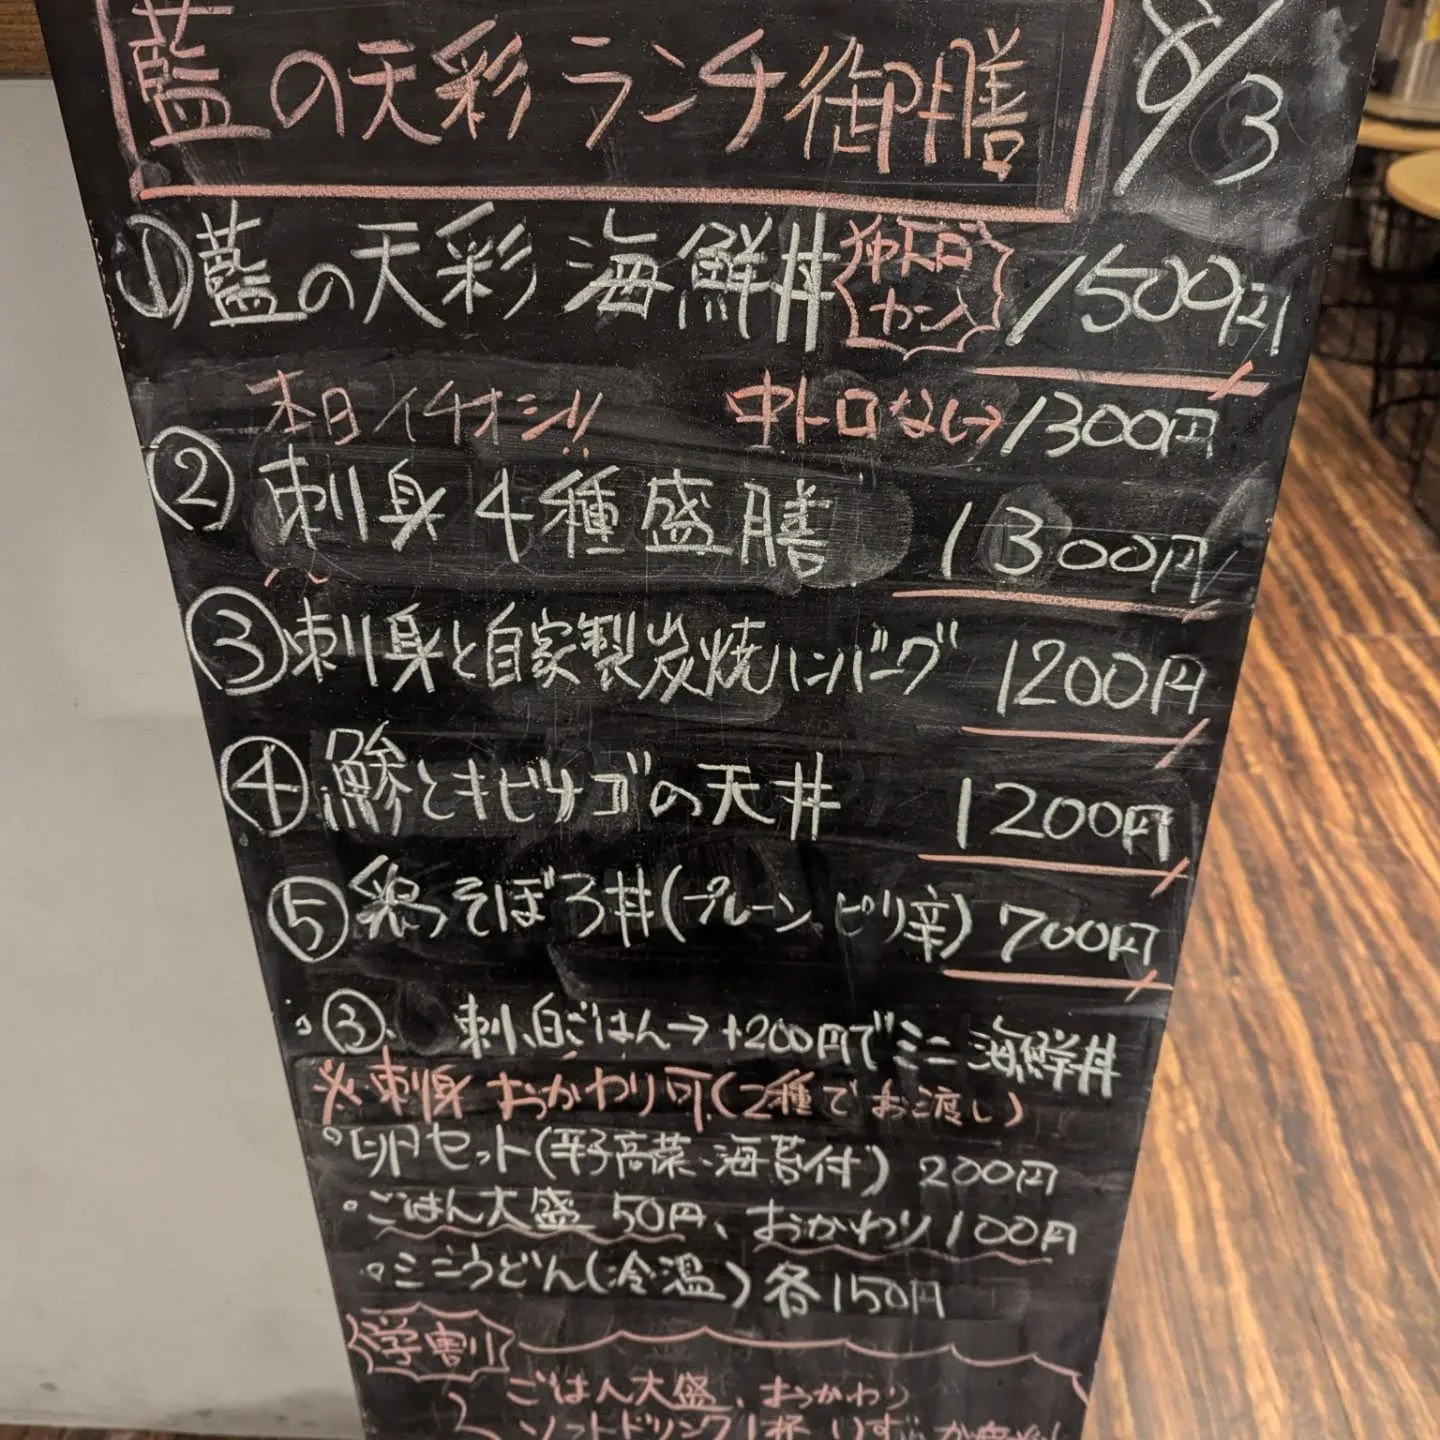 藍の天彩ランチ御膳 8/3
①藍の天彩 海鮮丼 1500円
本日イチオシ!! 中トロなし→1300円
②刺身4種盛膳 1300円
③刺身と自家製炭焼ハンバーグ 1200円
④鯵とキビナゴの天丼 1200円
⑤鶏そぼろ丼(プレーン、ピリ辛) 700円
③. 刺、白ごはん→+200円でミニ海鮮丼
※刺身 おかわり可(2種でお渡し)
°卵セット(野高菜・海苔付) 200円
°ごはん大盛 50円、おかわり100円
°ミニうどん(冷温)各150円
学割
ごはん大盛、おかわり
ソフトドリンク1杯 いずれか